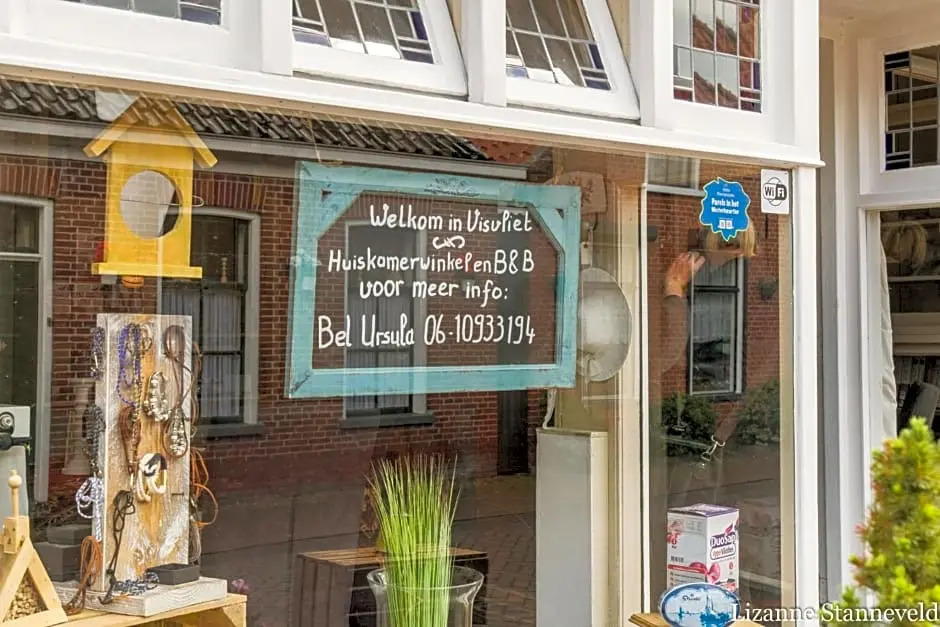 Welkom in Visvliet
Huiskamerwinkel en B&B
voor meer info:
Bel Ursula 06-10933194
WiFi
Parels in het
Westerkwartier
DuoSop
Lizanne Stanneveld